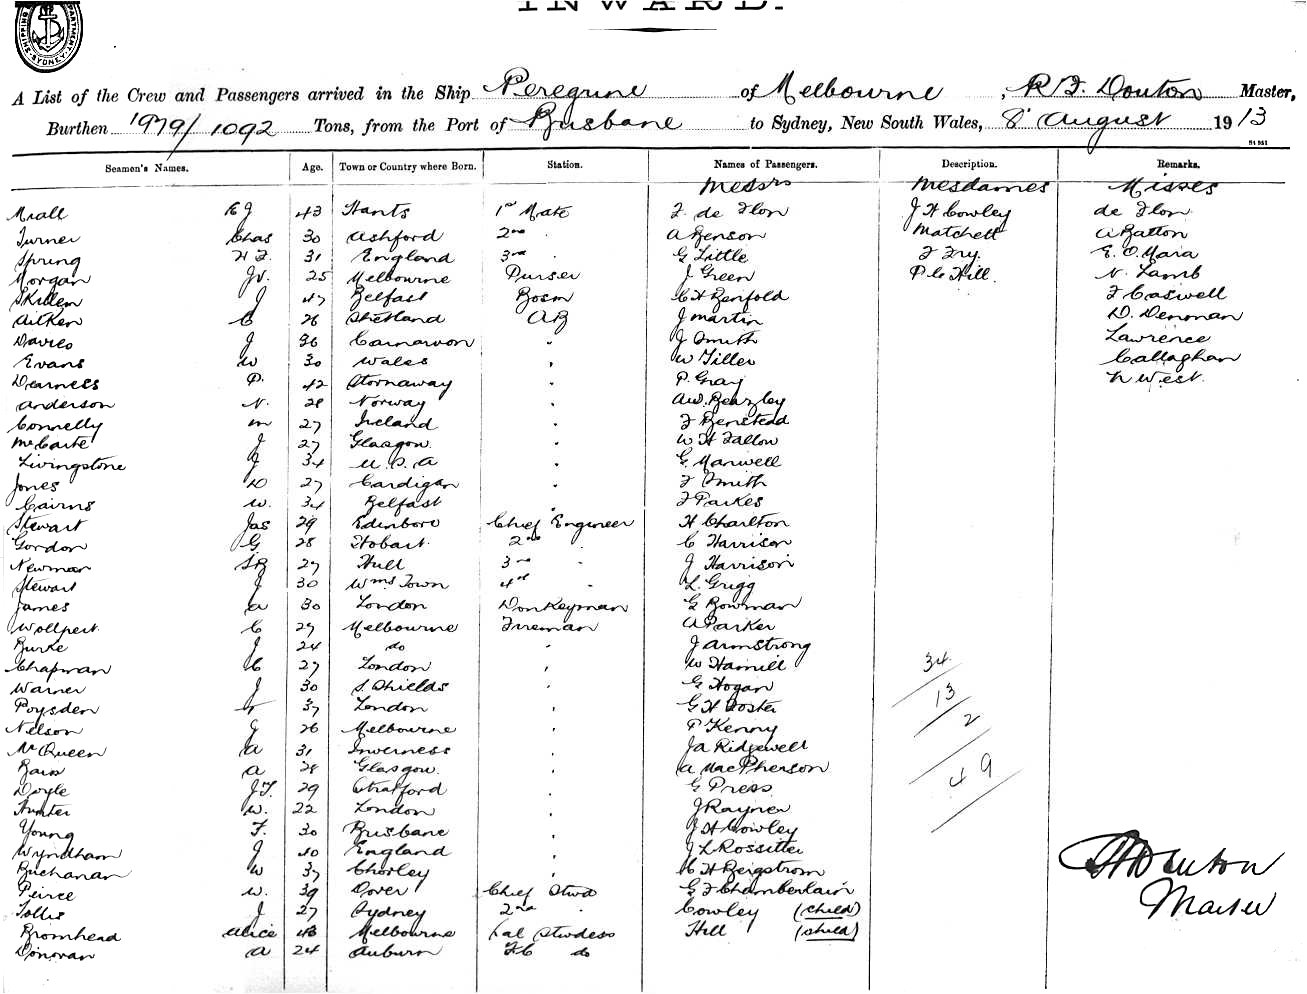 INWARD.
SHIPPING DEPARTMENT SYDNEY
A List of the Crew and Passengers arrived in the Ship Peregrine of Melbourne, R F. Douton Master,
Burthen 1979/1092 Tons, from the Port of Brisbane to Sydney, New South Wales, 8 August 1913
Seamen's Names. Age. Town or Country where Born. Station. Names of Passengers. Description. Remarks.
Messrs Mesdames Misses
Miall 43 Hants 1st Mate F. de Flon J H Cowley de Flon
Turner Chas 30 Ashford 2nd A Benson Matchett A Batton
Spring H F. 31 England 3rd G Little F Fry. E. O'Mara
Morgan 25 Melbourne Purser J. Green P Hill. N. Lamb
Skillen J 47 Belfast Bosn C H Benfold F Caswell
Aitken C 26 Shetland AB J Martin D. Denonan
Davies J 36 Carnarvon " J Smith Lawrence
Evans W 30 Wales " W Tiller Callaghan
Dearness P. 42 Stornaway " P. Gray N West.
Anderson N. 28 Norway " A W. Beazley
Connelly M 27 Ireland " F Benstead
McCarte J 27 Glasgow. " W H Fallow
Livingstone J 34 U.S.A " G. Manwell
Jones D 27 Cardigan " F Smith
Cairns W. 34 Belfast " F Parkes
Stewart Jas 29 Edinboro Chief Engineer H Charlton
Gordon G 28 Hobart. 2nd " C Harrison
Newman 27 Hull 3rd " J Harrison
Stewart J 30 Wms Town 4th " L. Grigg
James A 30 London Donkeyman G Bowman
Wollpert. C 29 Melbourne Fireman A Parker
Burke J 24 do " J Armstrong
Chapman C 27 London " W Hamill 34
Warner J 30 S. Shields " G Hogan 13
Poysden 37 London " G H Foster 2
Nelson J 26 Melbourne " P Kenny
McQueen A 31 Inverness " J A Ridgewell
Bain A 28 Glasgow. " A MacPherson 49
Doyle J.F. 29 Stratford " G Press
Hunter W. 22 London " J Rayner
Young F. 30 Brisbane " J H Cowley
Wyndham J 40 England " J L Rossitter
Buchanan W 37 Chorley " C H Bergstrom
Peirce W. 39 Dover Chief Stwd G F Chamberlain
Tollis J 27 Sydney 2nd " Cowley (child)
Bromhead Alice 43 Melbourne Sal Stwdess Hill (child)
Donovan A 24 Auburn F C do
Douton
Master